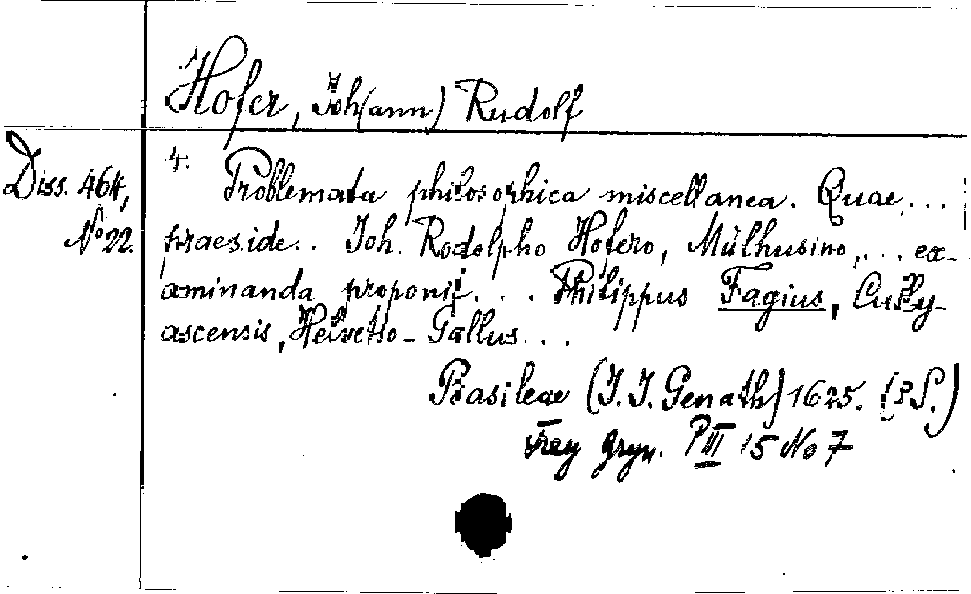 Hofer, Joh(ann) Rudolf
Diss. 464,
No 22.
4.
Problemata philosophica miscellanea. Quae...
praeside.. Joh. Rodolpho Hofero, Mülhusino,... ex-
aminanda proponit... Philippus Fagius, Cully-
ascensis, Helvetio-Gallus...
Basileae (J. J. Genath) 1625. (2 S.)
Frey Gryn. P III 15 No 7